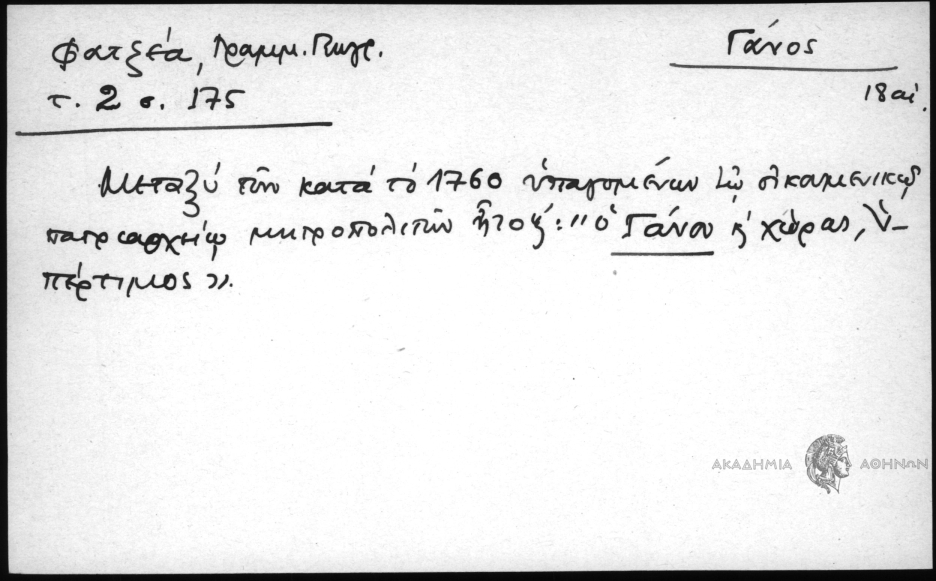 Φατζέα, Γραμμ. Γεωγρ.
τ. 2 σ. 175
Γάνος
18 αἰ.
Μεταξὺ τῶν κατὰ τὸ 1760 ὑπαγομένων τῷ οἰκουμενικῷ
πατριαρχείῳ μητροπολιτῶν ἦτο καὶ: "ὁ Γάνου κ χώρας, ὑ-
πέρτιμος».
ΑΚΑΔΗΜΙΑ ΑΘΗΝΩΝ